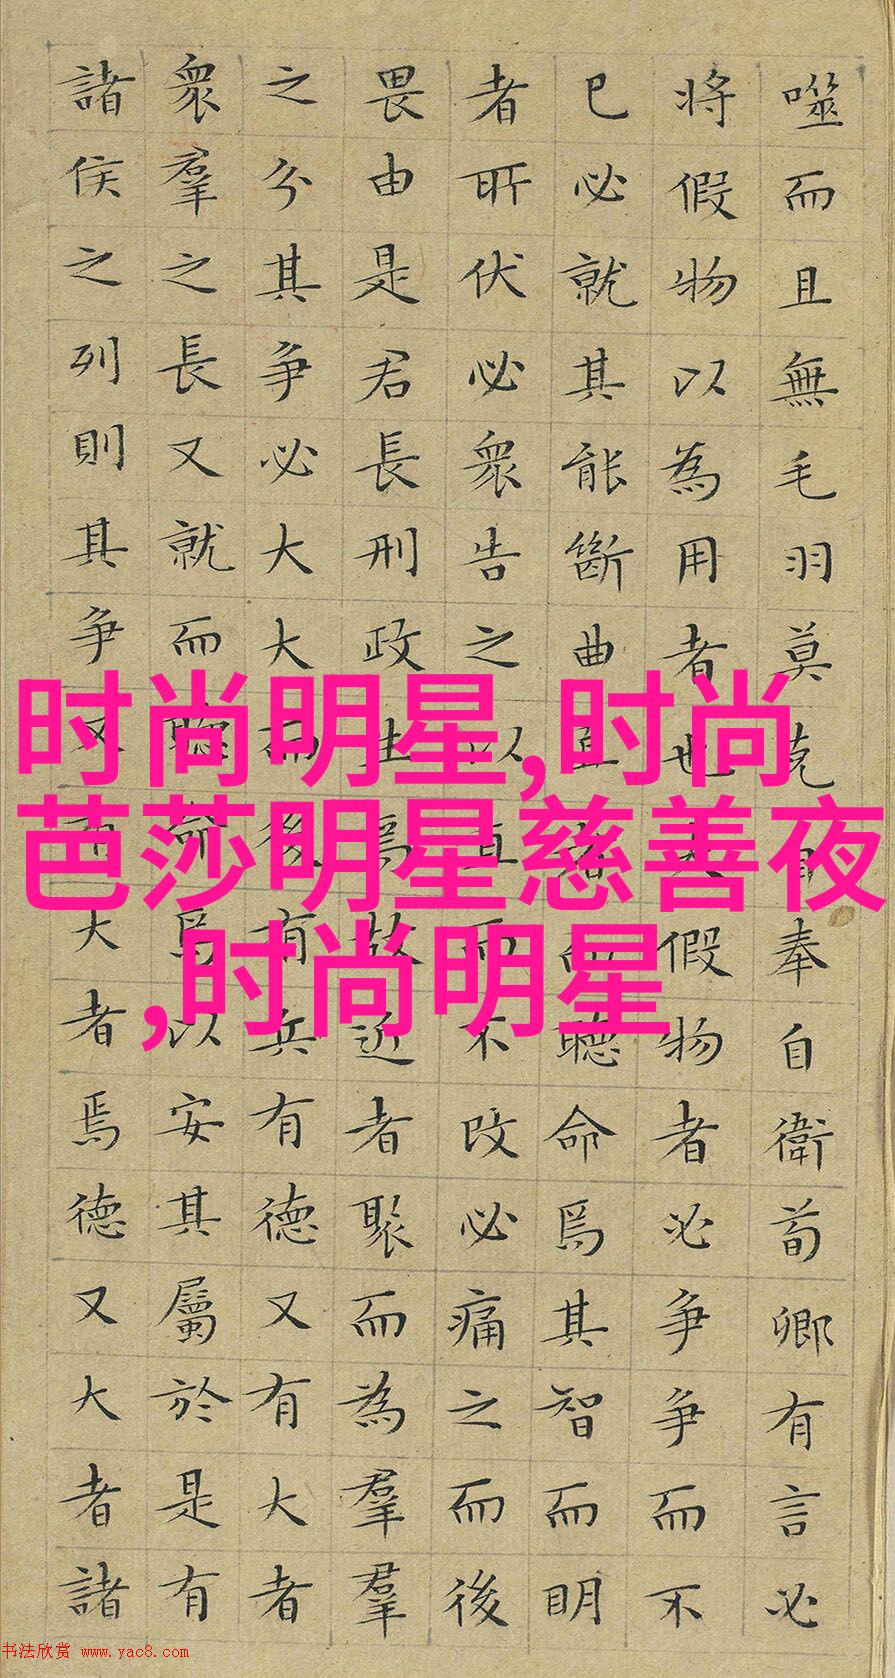 噬而且無毛羽莫克自奉自衛荀卿有言必
將假物以為用者也夫假物者必爭爭而不
已必就其能斷曲直者而聽命焉其智而明
者所伏必衆告之以直而不改必痛之而後
畏由是君長刑政生焉故近者聚而為羣羣
之分其爭必大大而後有兵有德又有大者
衆羣之長又就而聽命焉以安其屬於是有
諸侯之列則其爭又有大者焉德又大者諸
时尚明星,时尚
芭莎明星慈善夜
,时尚明星
书法欣赏 www.yac8.com